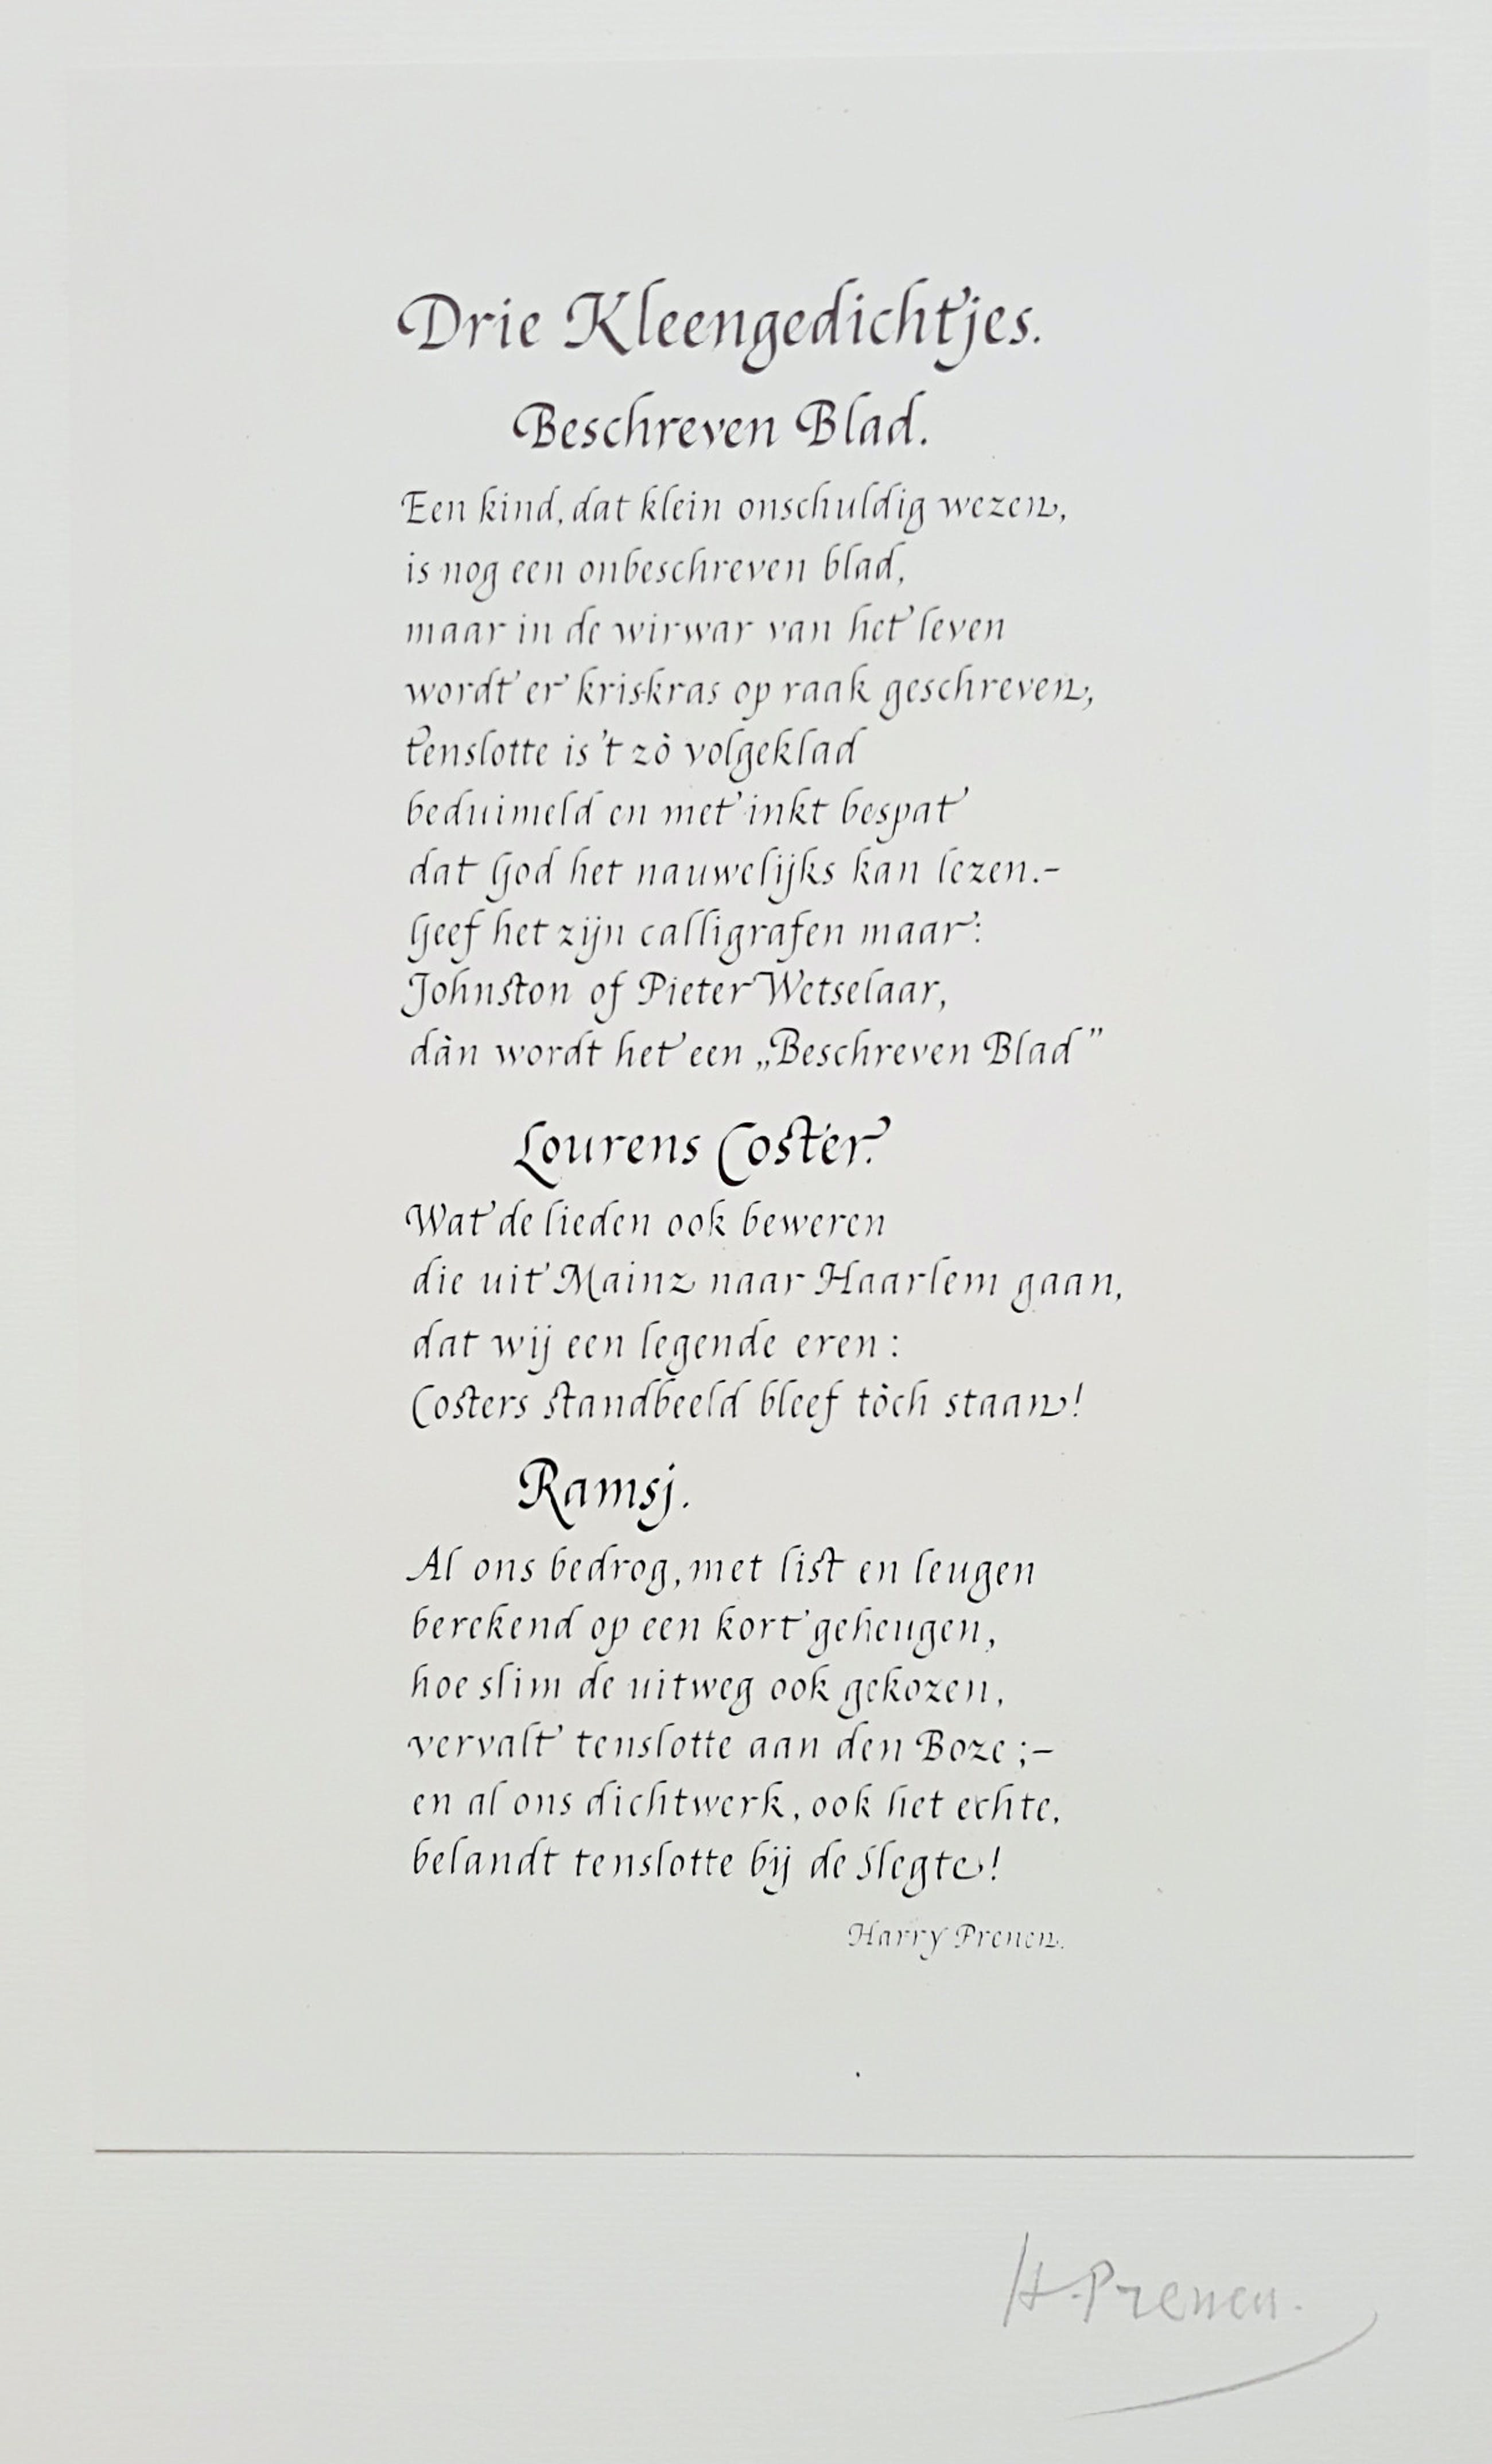 Drie Kleengedichtjes.
Beschreven Blad.
Een kind, dat klein onschuldig wezen,
is nog een onbeschreven blad,
maar in de wirwar van het leven
wordt er kriskras op raak geschreven,
tenslotte is 't zò volgeklad
beduimeld en met inkt bespat
dat God het nauwelijks kan lezen.-
Geef het zijn calligrafen maar:
Johnston of Pieter Wetselaar,
dàn wordt het een „Beschreven Blad”
Lourens Coster.
Wat de lieden ook beweren
die uit Mainz naar Haarlem gaan,
dat wij een legende eren:
Costers standbeeld bleef tòch staan!
Ramsj.
Al ons bedrog, met list en leugen
berekend op een kort geheugen,
hoe slim de uitweg ook gekozen,
vervalt tenslotte aan den Boze;-
en al ons dichtwerk, ook het echte,
belandt tenslotte bij de Slegte!
Harry Prenen.
H. Prenen.